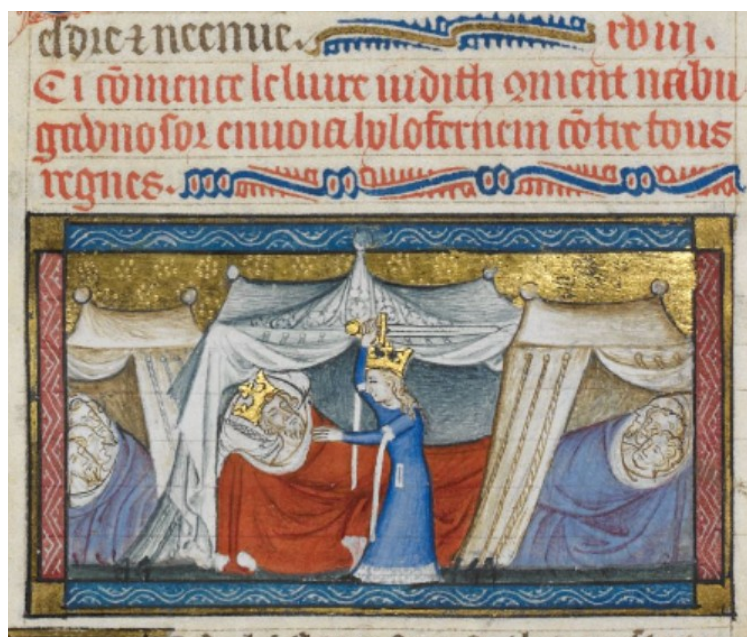 esdre ⁊ neemie. xviii.
Ci cōmence le liure iudith ꝯment nabu
gadonosor enuoia holofernem cōtre tous
regnes.